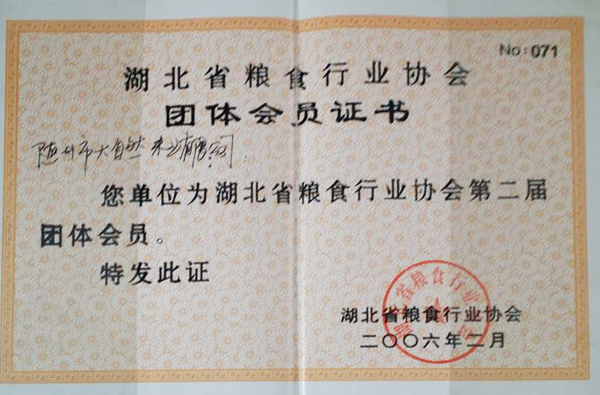 No: 071
湖北省粮食行业协会
团体会员证书
随州市大自然米业有限公司:
您单位为湖北省粮食行业协会第二届
团体会员。
特发此证
湖北省粮食行业协会
湖北省粮食行业协会
二〇〇六年二月